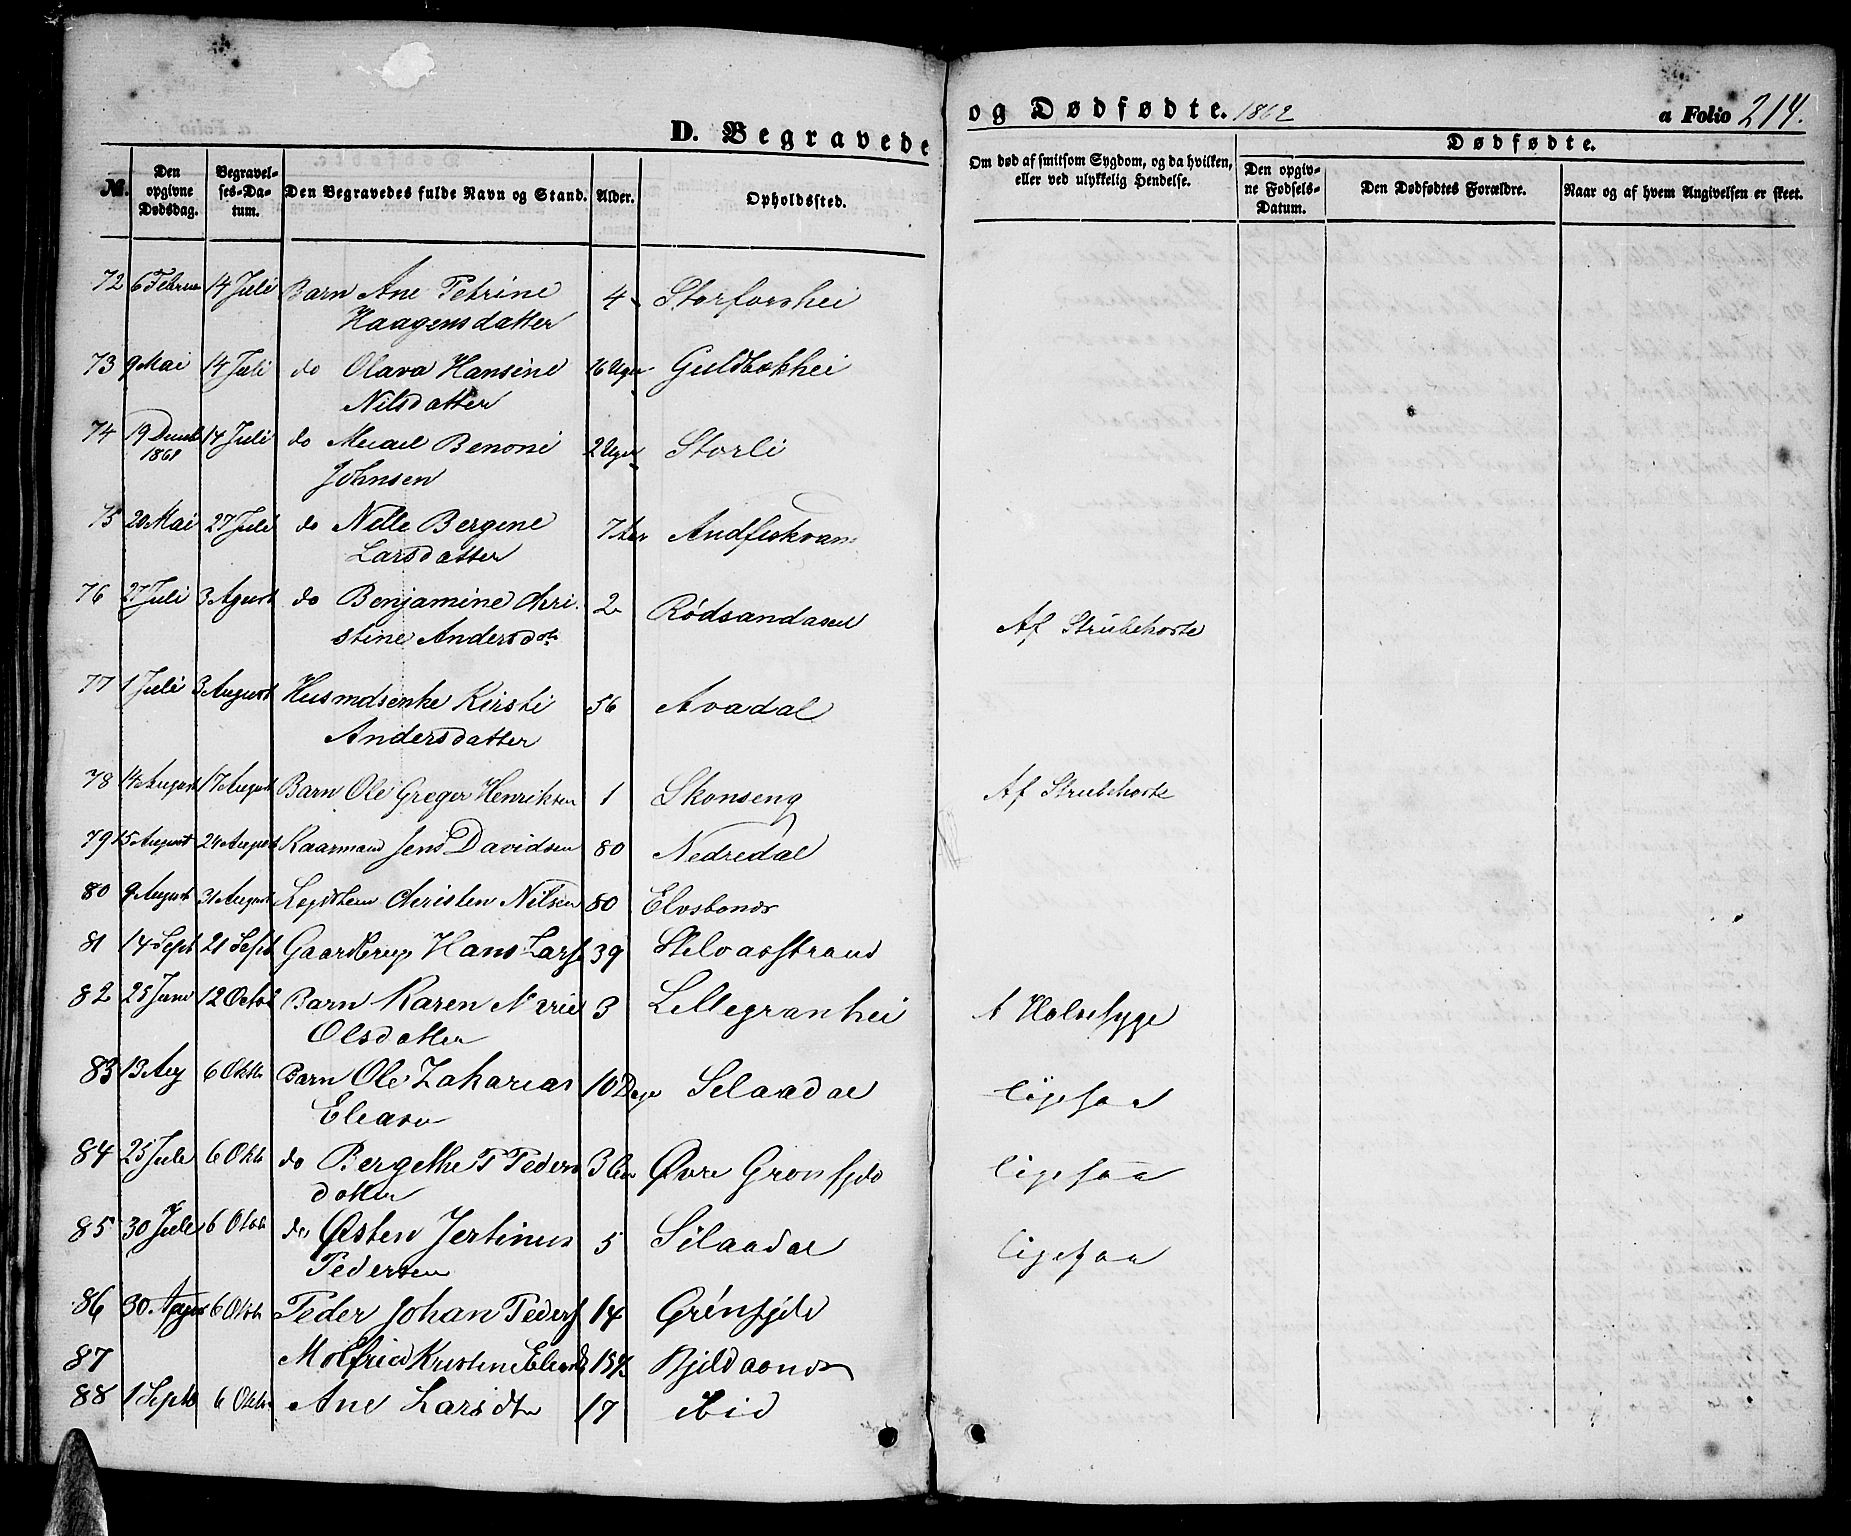 D. Begravede og Dødfødte. 1862 a Folio 214.
Dødfødte.
No. Den opgivne Dødsdag. Begravelses-Datum. Den Begravedes fulde Navn og Stand. Alder. Opholdssted. Om død af smitsom Sygdom, og da hvilken, eller ved ulykkelig Hendelse. Den opgivne Fødsels-Datum. Den Dødfødtes Forældre. Naar og af hvem Angivelsen er skeet.
72 6 Februar 14 Juli Barn Ane Petrine 4 Storforshei
Haagensdatter
73 9 Mai 14 Juli do Olava Hansine 16 Uger Guldbekhei
Nilsdatter
74 19 Decmb 14 Juli do Micael Benoni 2 Uger Storli
1861 Johnsen
75 20 Mai 27 Juli do Nelle Bergine 7 Andfiskvan
Larsdatter
76 27 Juli 3 Agust do Benjamine Chri- 2 Rödsandasen Af Strubehoste
stine Andersdtr
77 1 Juli 3 August Husmdsenke Kirsti 56 Avadal
Andersdatter
78 14 August 17 August Barn Ole Greger Henriksen 1 Skonseng Af Strubehoste
79 15 August 24 August Kaarmand Jens Davidsen 80 Nedredal
80 9 August 31 August Christen Nilsen 80
81 14 Sept 21 Sept Hans Lars 39 Selvasstrand
82 25 Juni 12 Octob Barn Karen Marie 3 Lillegranhei Af Halssyge
Olsdatter
83 13 Aug 6 Oktb Barn Ole Zakarias 10 Dage Selaadal ligesaa
Eleasen
84 25 Juli 6 Oktb do Bergethe P Peders 3 Øvre Gronfjeld ligesaa
datter
85 30 Juli 6 Oktob do Østen Jertinus 5 Silaadal ligesaa
Pedersen
86 30 August 6 Oktob Peder Johan Peders 14 Grönfjeld
87 Molfrid Kristine 15
88 1 Septb 6 Oktbr Ane Larsdtr 17 ibid